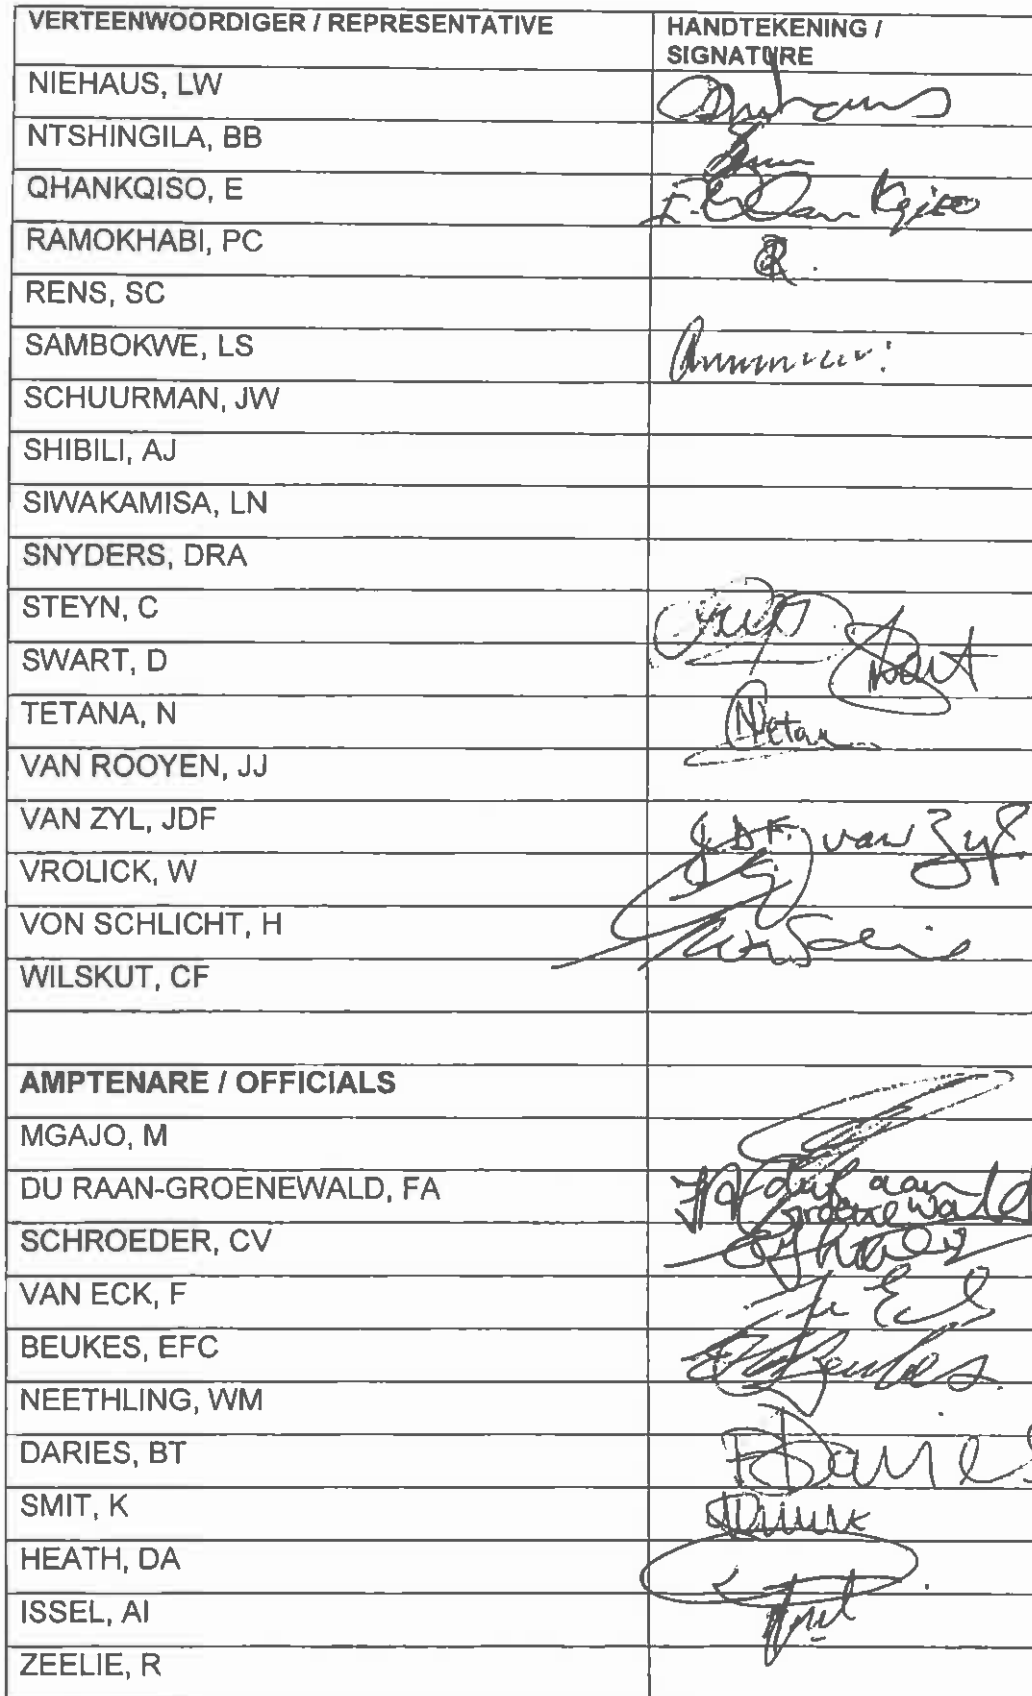 VERTEENWOORDIGER / REPRESENTATIVE
HANDTEKENING /
SIGNATURE
NIEHAUS, LW
NTSHINGILA, BB
QHANKQISO, E
RAMOKHABI, PC
RENS, SC
SAMBOKWE, LS
SCHUURMAN, JW
SHIBILI, AJ
SIWAKAMISA, LN
SNYDERS, DRA
STEYN, C
SWART, D
Swart
TETANA, N
VAN ROOYEN, JJ
VAN ZYL, JDF
J.D.F. van Zyl
VROLICK, W
VON SCHLICHT, H
WILSKUT, CF
AMPTENARE / OFFICIALS
MGAJO, M
DU RAAN-GROENEWALD, FA
FA du Raan
Groenewald
SCHROEDER, CV
VAN ECK, F
BEUKES, EFC
Beukes
NEETHLING, WM
DARIES, BT
BDaries
SMIT, K
HEATH, DA
ISSEL, AI
ZEELIE, R